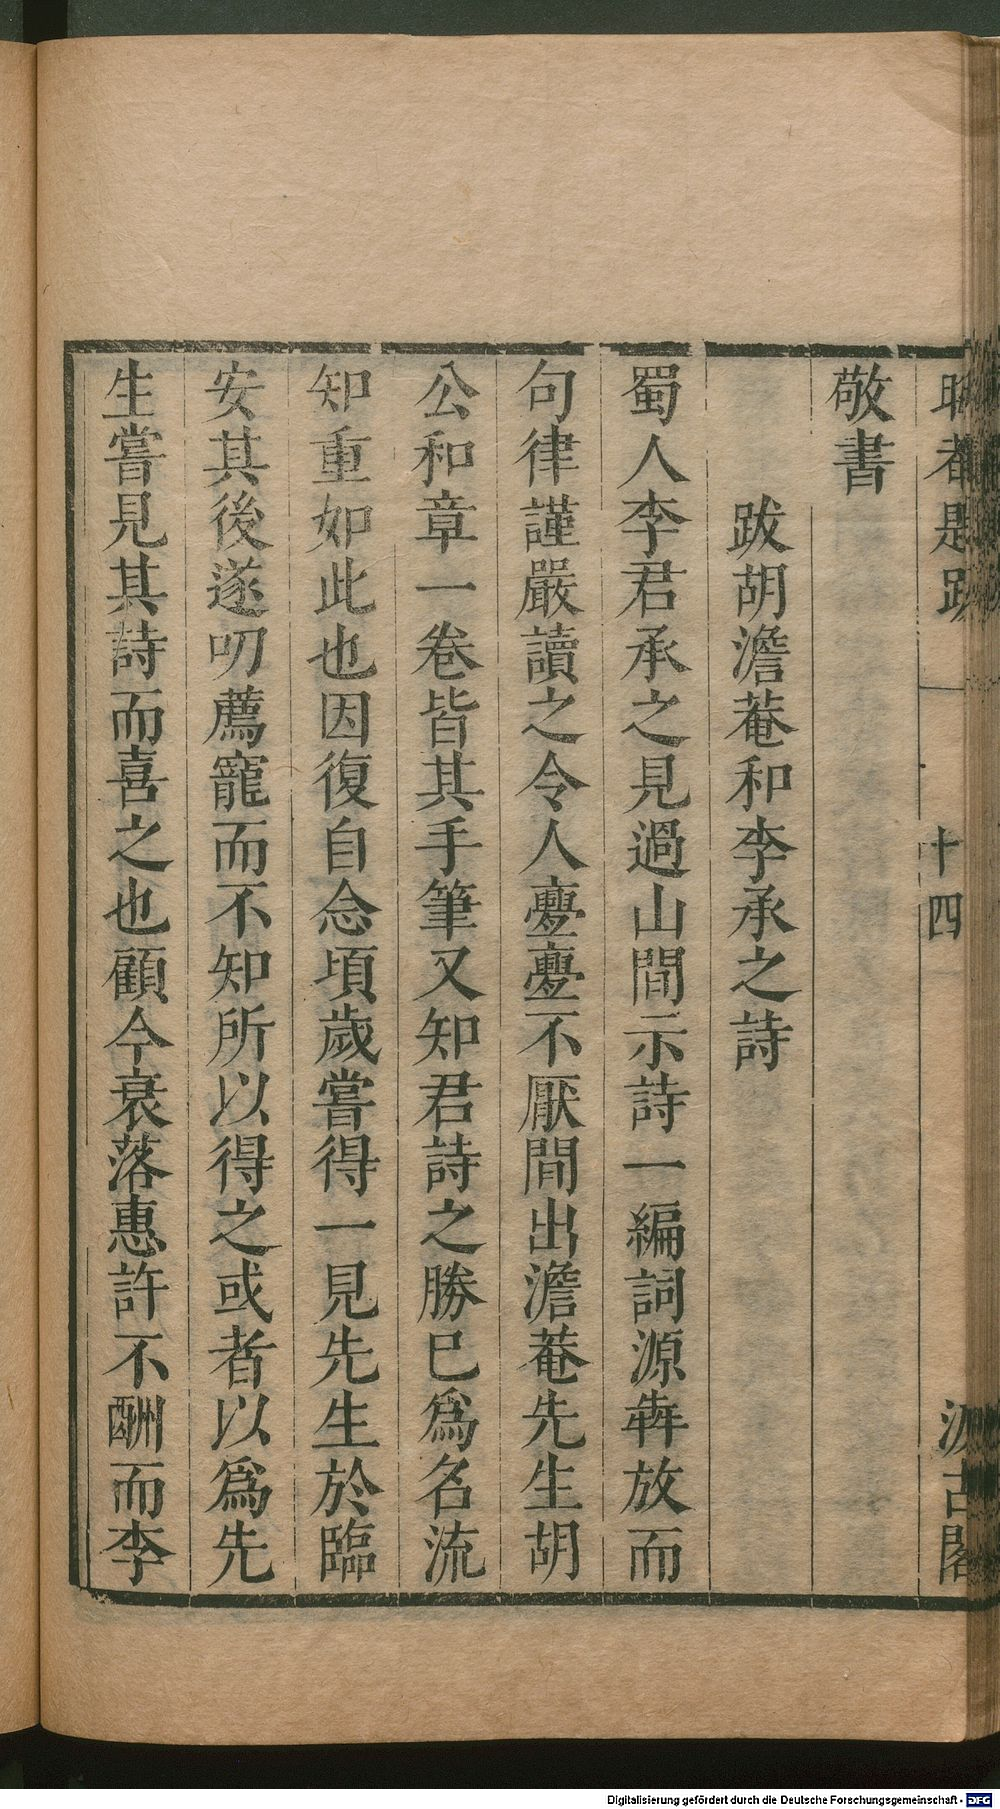 十四
敬書
跋胡澹菴和李承之詩
蜀人李君承之見過山間示詩一編詞源犇放而
句律謹嚴讀之令人亹亹不厭間出澹菴先生胡
公和章一卷皆其手筆又知君詩之勝巳爲名流
知重如此也因復自念頃歲嘗得一見先生於臨
安其後遂叨薦寵而不知所以得之或者以爲先
生嘗見其詩而喜之也顧今衰落惠許不酬而李
Digitalisierung gefördert durch die Deutsche Forschungsgemeinschaft - DFG